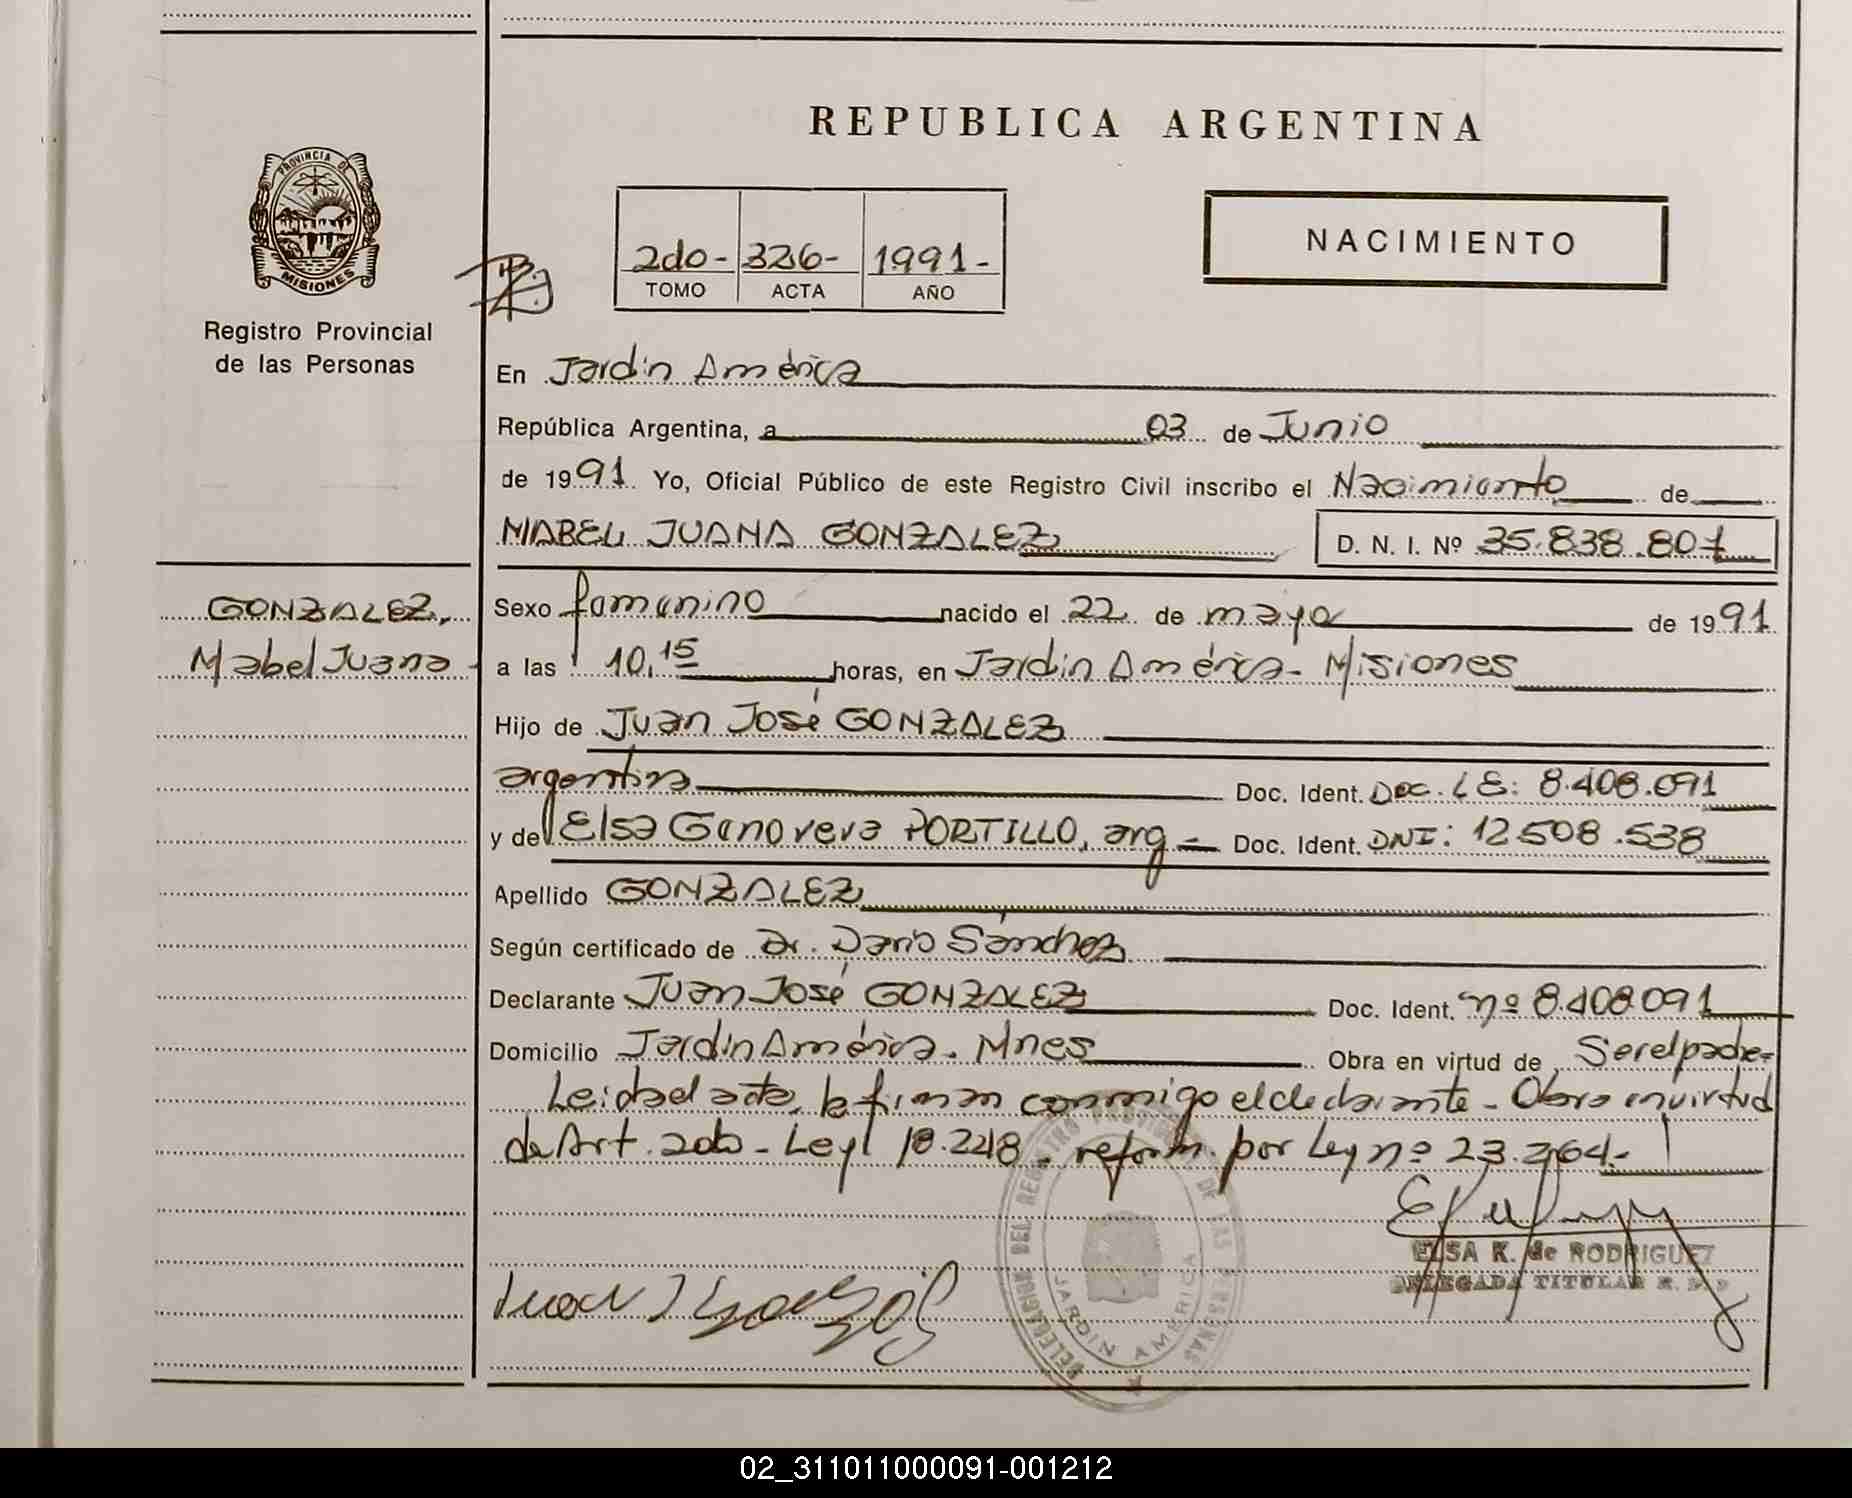 REPUBLICA ARGENTINA
PROVINCIA DE
MISIONES
Registro Provincial
de las Personas
2do- 326- 1991-
TOMO ACTA AÑO
NACIMIENTO
En Jardín América
República Argentina, a 03 de Junio
de 1991 Yo, Oficial Público de este Registro Civil inscribo el Nacimiento de
MABEL JUANA GONZALEZ D. N. I. Nº 35.838.807
GONZALEZ,
Mabel Juana -
Sexo femenino nacido el 22 de mayo de 1991
a las 10,15 horas, en Jardín América - Misiones
Hijo de Juan José GONZALEZ
argentina Doc. Ident. Doc. LE: 8.408.091
y de Elsa Genoveva PORTILLO, arg - Doc. Ident. DNI: 12508.538
Apellido GONZALEZ
Según certificado de Dr. Darío Sánchez
Declarante Juan José GONZALEZ Doc. Ident. nº 8.408.091
Domicilio Jardín América. Mnes Obra en virtud de Ser el padre-
Leída el acta, la firman conmigo el declarante - Obra en virtud
de Art. 2do - Ley 18.248 - reform. por Ley nº 23.264.-
ELSA K. de RODRIGUEZ
DELEGADA TITULAR R. P. P.
DELEGACION DEL REGISTRO PROVINCIAL DE LAS PERSONAS
JARDIN AMERICA
02_311011000091-001212